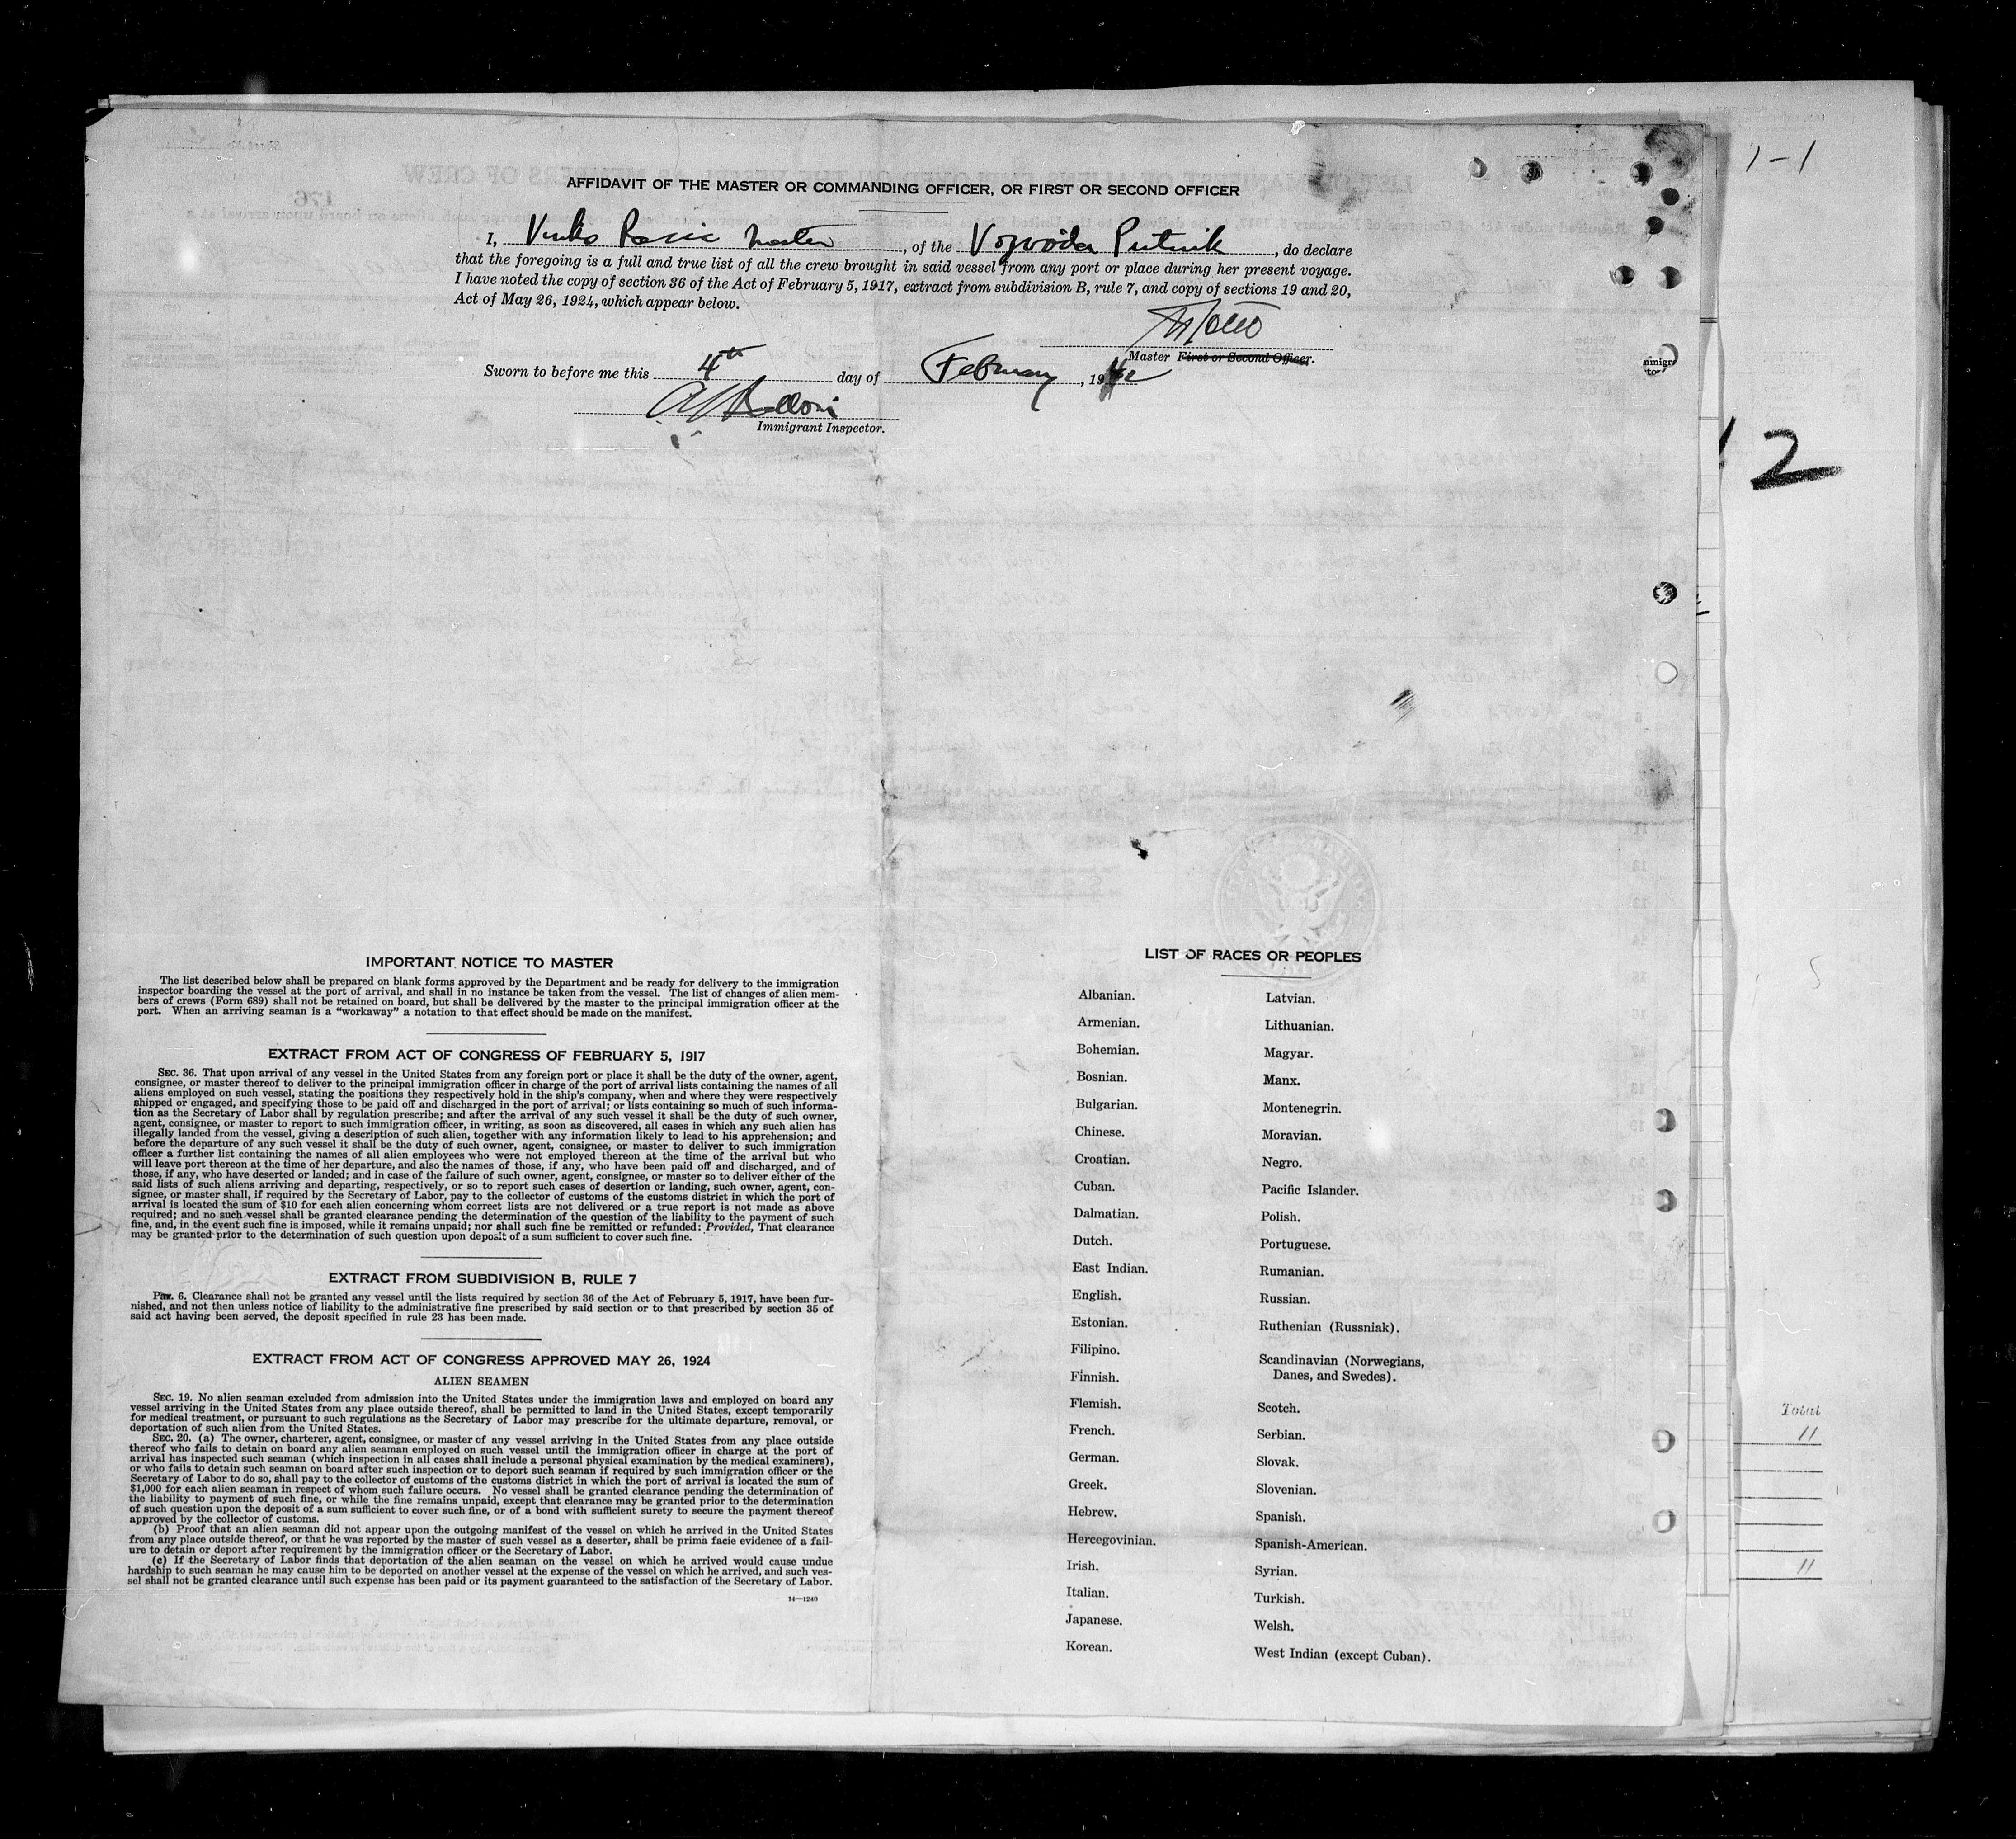 AFFIDAVIT OF THE MASTER OR COMMANDING OFFICER, OR FIRST OR SECOND OFFICER
I, Vinko Master, of the Vojvoda Putnik, do declare
that the foregoing is a full and true list of all the crew brought in said vessel from any port or place during her present voyage.
I have noted the copy of section 36 of the Act of February 5, 1917, extract from subdivision B, rule 7, and copy of sections 19 and 20,
Act of May 26, 1924, which appear below.
Master First or Second Officer.
Sworn to before me this 4th day of February, 1942
Immigrant Inspector.
1-1
2
IMPORTANT NOTICE TO MASTER
The list described below shall be prepared on blank forms approved by the Department and be ready for delivery to the immigration
inspector boarding the vessel at the port of arrival, and shall in no instance be taken from the vessel. The list of changes of alien mem-
bers of crews (Form 689) shall not be retained on board, but shall be delivered by the master to the principal immigration officer at the
port. When an arriving seaman is a "workaway" a notation to that effect should be made on the manifest.
EXTRACT FROM ACT OF CONGRESS OF FEBRUARY 5, 1917
SEC. 36. That upon arrival of any vessel in the United States from any foreign port or place it shall be the duty of the owner, agent,
consignee, or master thereof to deliver to the principal immigration officer in charge of the port of arrival lists containing the names of all
aliens employed on such vessel, stating the positions they respectively hold in the ship's company, when and where they were respectively
shipped or engaged, and specifying those to be paid off and discharged in the port of arrival; or lists containing so much of such informa-
tion as the Secretary of Labor shall by regulation prescribe; and after the arrival of any such vessel it shall be the duty of such owner,
agent, consignee, or master to report to such immigration officer, in writing, as soon as discovered, all cases in which any such alien has
illegally landed from the vessel, giving a description of such alien, together with any information likely to lead to his apprehension; and
before the departure of any such vessel it shall be the duty of such owner, agent, consignee, or master to deliver to such immigration
officer a further list containing the names of all alien employees who were not employed thereon at the time of the arrival but who
will leave port thereon at the time of her departure, and also the names of those, if any, who have been paid off and discharged, and of
those, if any, who have deserted or landed; and in case of the failure of such owner, agent, consignee, or master so to deliver either of the
said lists of such aliens arriving and departing, respectively, or so to report such cases of desertion or landing, such owner, agent, con-
signee, or master shall, if required by the Secretary of Labor, pay to the collector of customs of the customs district in which the port of
arrival is located the sum of $10 for each alien concerning whom correct lists are not delivered or a true report is not made as above
required; and no such vessel shall be granted clearance pending the determination of the question of the liability to the payment of such
fine, and, in the event such fine is imposed, while it remains unpaid; nor shall such fine be remitted or refunded: Provided, That clearance
may be granted prior to the determination of such question upon deposit of a sum sufficient to cover such fine.
EXTRACT FROM SUBDIVISION B, RULE 7
Par. 6. Clearance shall not be granted any vessel until the lists required by section 36 of the Act of February 5, 1917, have been fur-
nished, and not then unless notice of liability to the administrative fine prescribed by said section or to that prescribed by section 35 of
said act having been served, the deposit specified in rule 23 has been made.
EXTRACT FROM ACT OF CONGRESS APPROVED MAY 26, 1924
ALIEN SEAMEN
SEC. 19. No alien seaman excluded from admission into the United States under the immigration laws and employed on board any
vessel arriving in the United States from any place outside thereof, shall be permitted to land in the United States, except temporarily
for medical treatment, or pursuant to such regulations as the Secretary of Labor may prescribe for the ultimate departure, removal, or
deportation of such alien from the United States.
SEC. 20. (a) The owner, charterer, agent, consignee, or master of any vessel arriving in the United States from any place outside
thereof who fails to detain on board any alien seaman employed on such vessel until the immigration officer in charge at the port of
arrival has inspected such seaman (which inspection in all cases shall include a personal physical examination by the medical examiners),
or who fails to detain such seaman on board after such inspection or to deport such seaman if required by such immigration officer or the
Secretary of Labor to do so, shall pay to the collector of customs of the customs district in which the port of arrival is located the sum of
$1,000 for each alien seaman in respect of whom such failure occurs. No vessel shall be granted clearance pending the determination of
the liability to payment of such fine, or while the fine remains unpaid, except that clearance may be granted prior to the determination
of such question upon the deposit of a sum sufficient to cover such fine, or of a bond with sufficient surety to secure the payment thereof
approved by the collector of customs.
(b) Proof that an alien seaman did not appear upon the outgoing manifest of the vessel on which he arrived in the United States
from any place outside thereof, or that he was reported by the master of such vessel as a deserter, shall be prima facie evidence of a fail-
ure to detain or deport after requirement by the immigration officer or the Secretary of Labor.
(c) If the Secretary of Labor finds that deportation of the alien seaman on the vessel on which he arrived would cause undue
hardship to such seaman he may cause him to be deported on another vessel at the expense of the vessel on which he arrived, and such ves-
sel shall not be granted clearance until such expense has been paid or its payment guaranteed to the satisfaction of the Secretary of Labor.
14—1240
LIST OF RACES OR PEOPLES
Albanian.
Armenian.
Bohemian.
Bosnian.
Bulgarian.
Chinese.
Croatian.
Cuban.
Dalmatian.
Dutch.
East Indian.
English.
Estonian.
Filipino.
Finnish.
Flemish.
French.
German.
Greek.
Hebrew.
Hercegovinian.
Irish.
Italian.
Japanese.
Korean.
Latvian.
Lithuanian.
Magyar.
Manx.
Montenegrin.
Moravian.
Negro.
Pacific Islander.
Polish.
Portuguese.
Rumanian.
Russian.
Ruthenian (Russniak).
Scandinavian (Norwegians,
Danes, and Swedes).
Scotch.
Serbian.
Slovak.
Slovenian.
Spanish.
Spanish-American.
Syrian.
Turkish.
Welsh.
West Indian (except Cuban).
Total
11
11